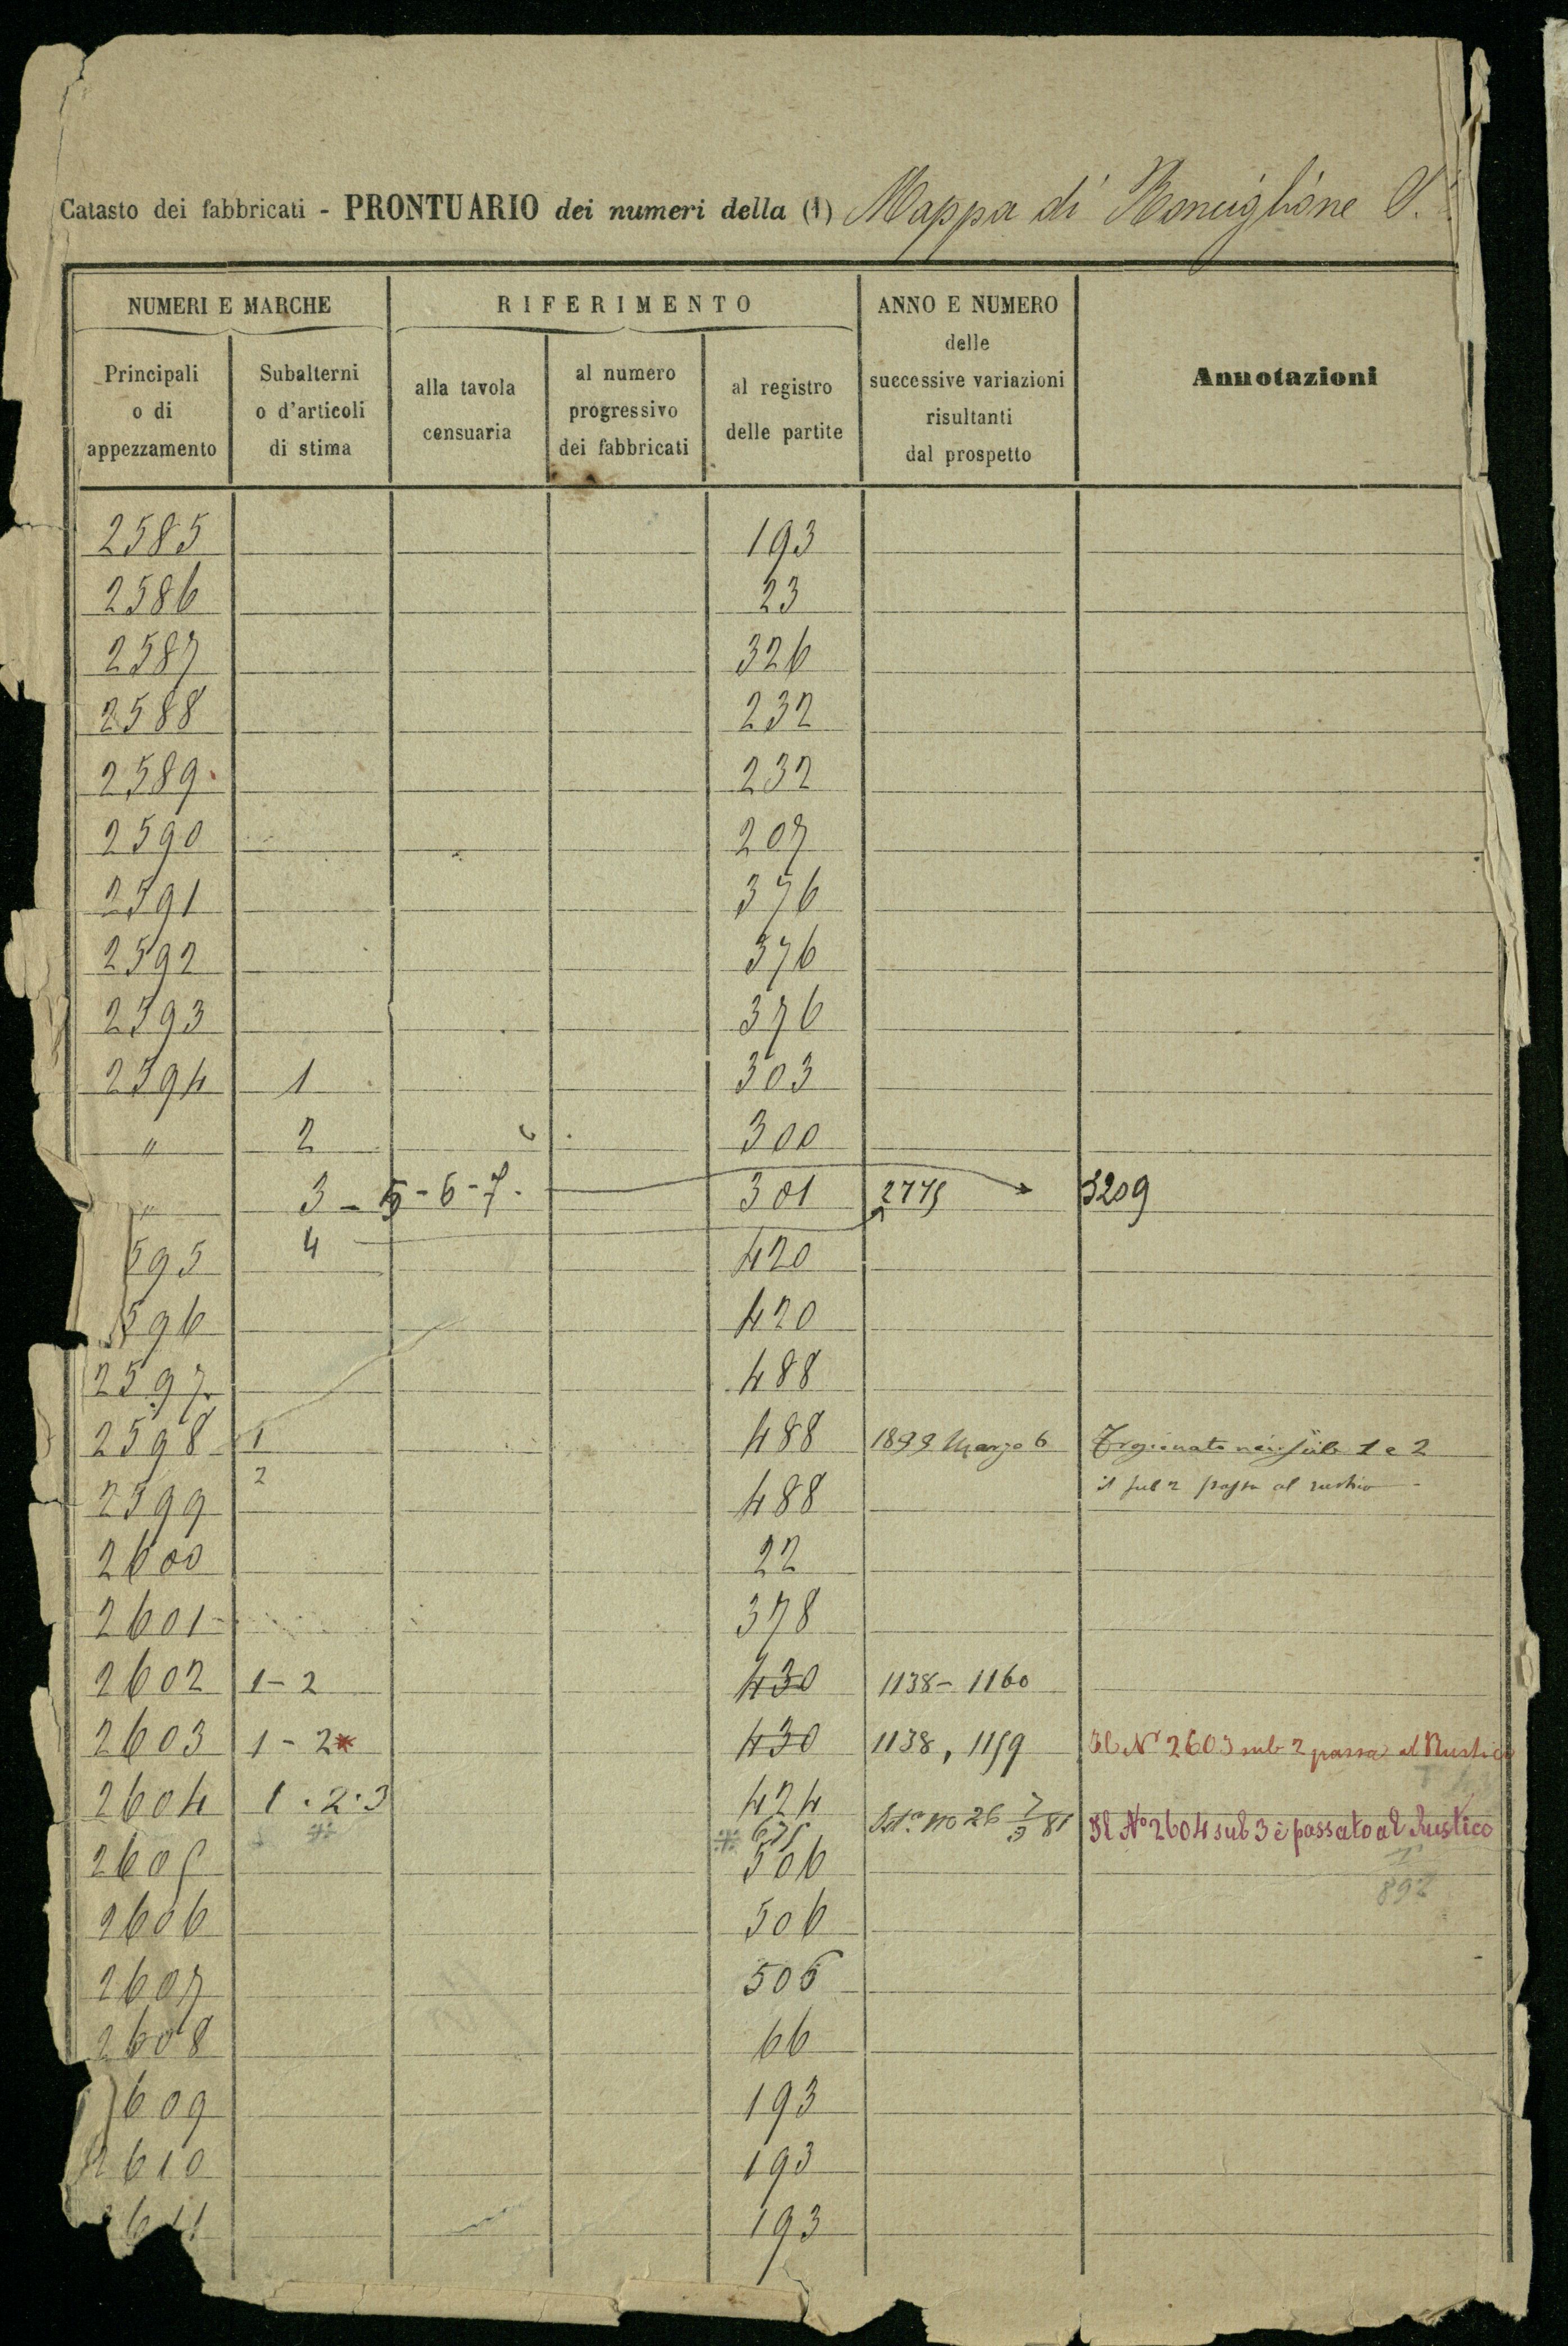 Catasto dei fabbricati - PRONTUARIO dei numeri della (1) Mappa di Ronciglione S.
NUMERI E MARCHE
RIFERIMENTO
ANNO E NUMERO
delle
successive variazioni
risultanti
dal prospetto
Annotazioni
Principali
o di
appezzamento
Subalterni
o d'articoli
di stima
alla tavola
censuaria
al numero
progressivo
dei fabbricati
al registro
delle partite
2585 193
2586 23
2587 326
2588 232
2589 232
2590 207
2591 376
2592 376
2593 376
2594 1 303
" 2 300
" 3 - 5 - 6 - 7 - 301 2775 3209
4
595 420
596 420
2597 488
2598 1 488 1899 Marzo 6 sub 1 e 2
2 il sub 2 passa al rustico
2599 488
2600 22
2601 378
2602 1 - 2 430 1138 - 1160
2603 1 - 2* 430 1138, 1159 Il N° 2603 sub 2 passa al Rustico
2604 1 . 2 . 3 424
675 26 Il N° 2604 sub 3 è passato al Rustico
2605 506
892
2606 506
2607 506
2608 66
609 193
2610 193
611 193